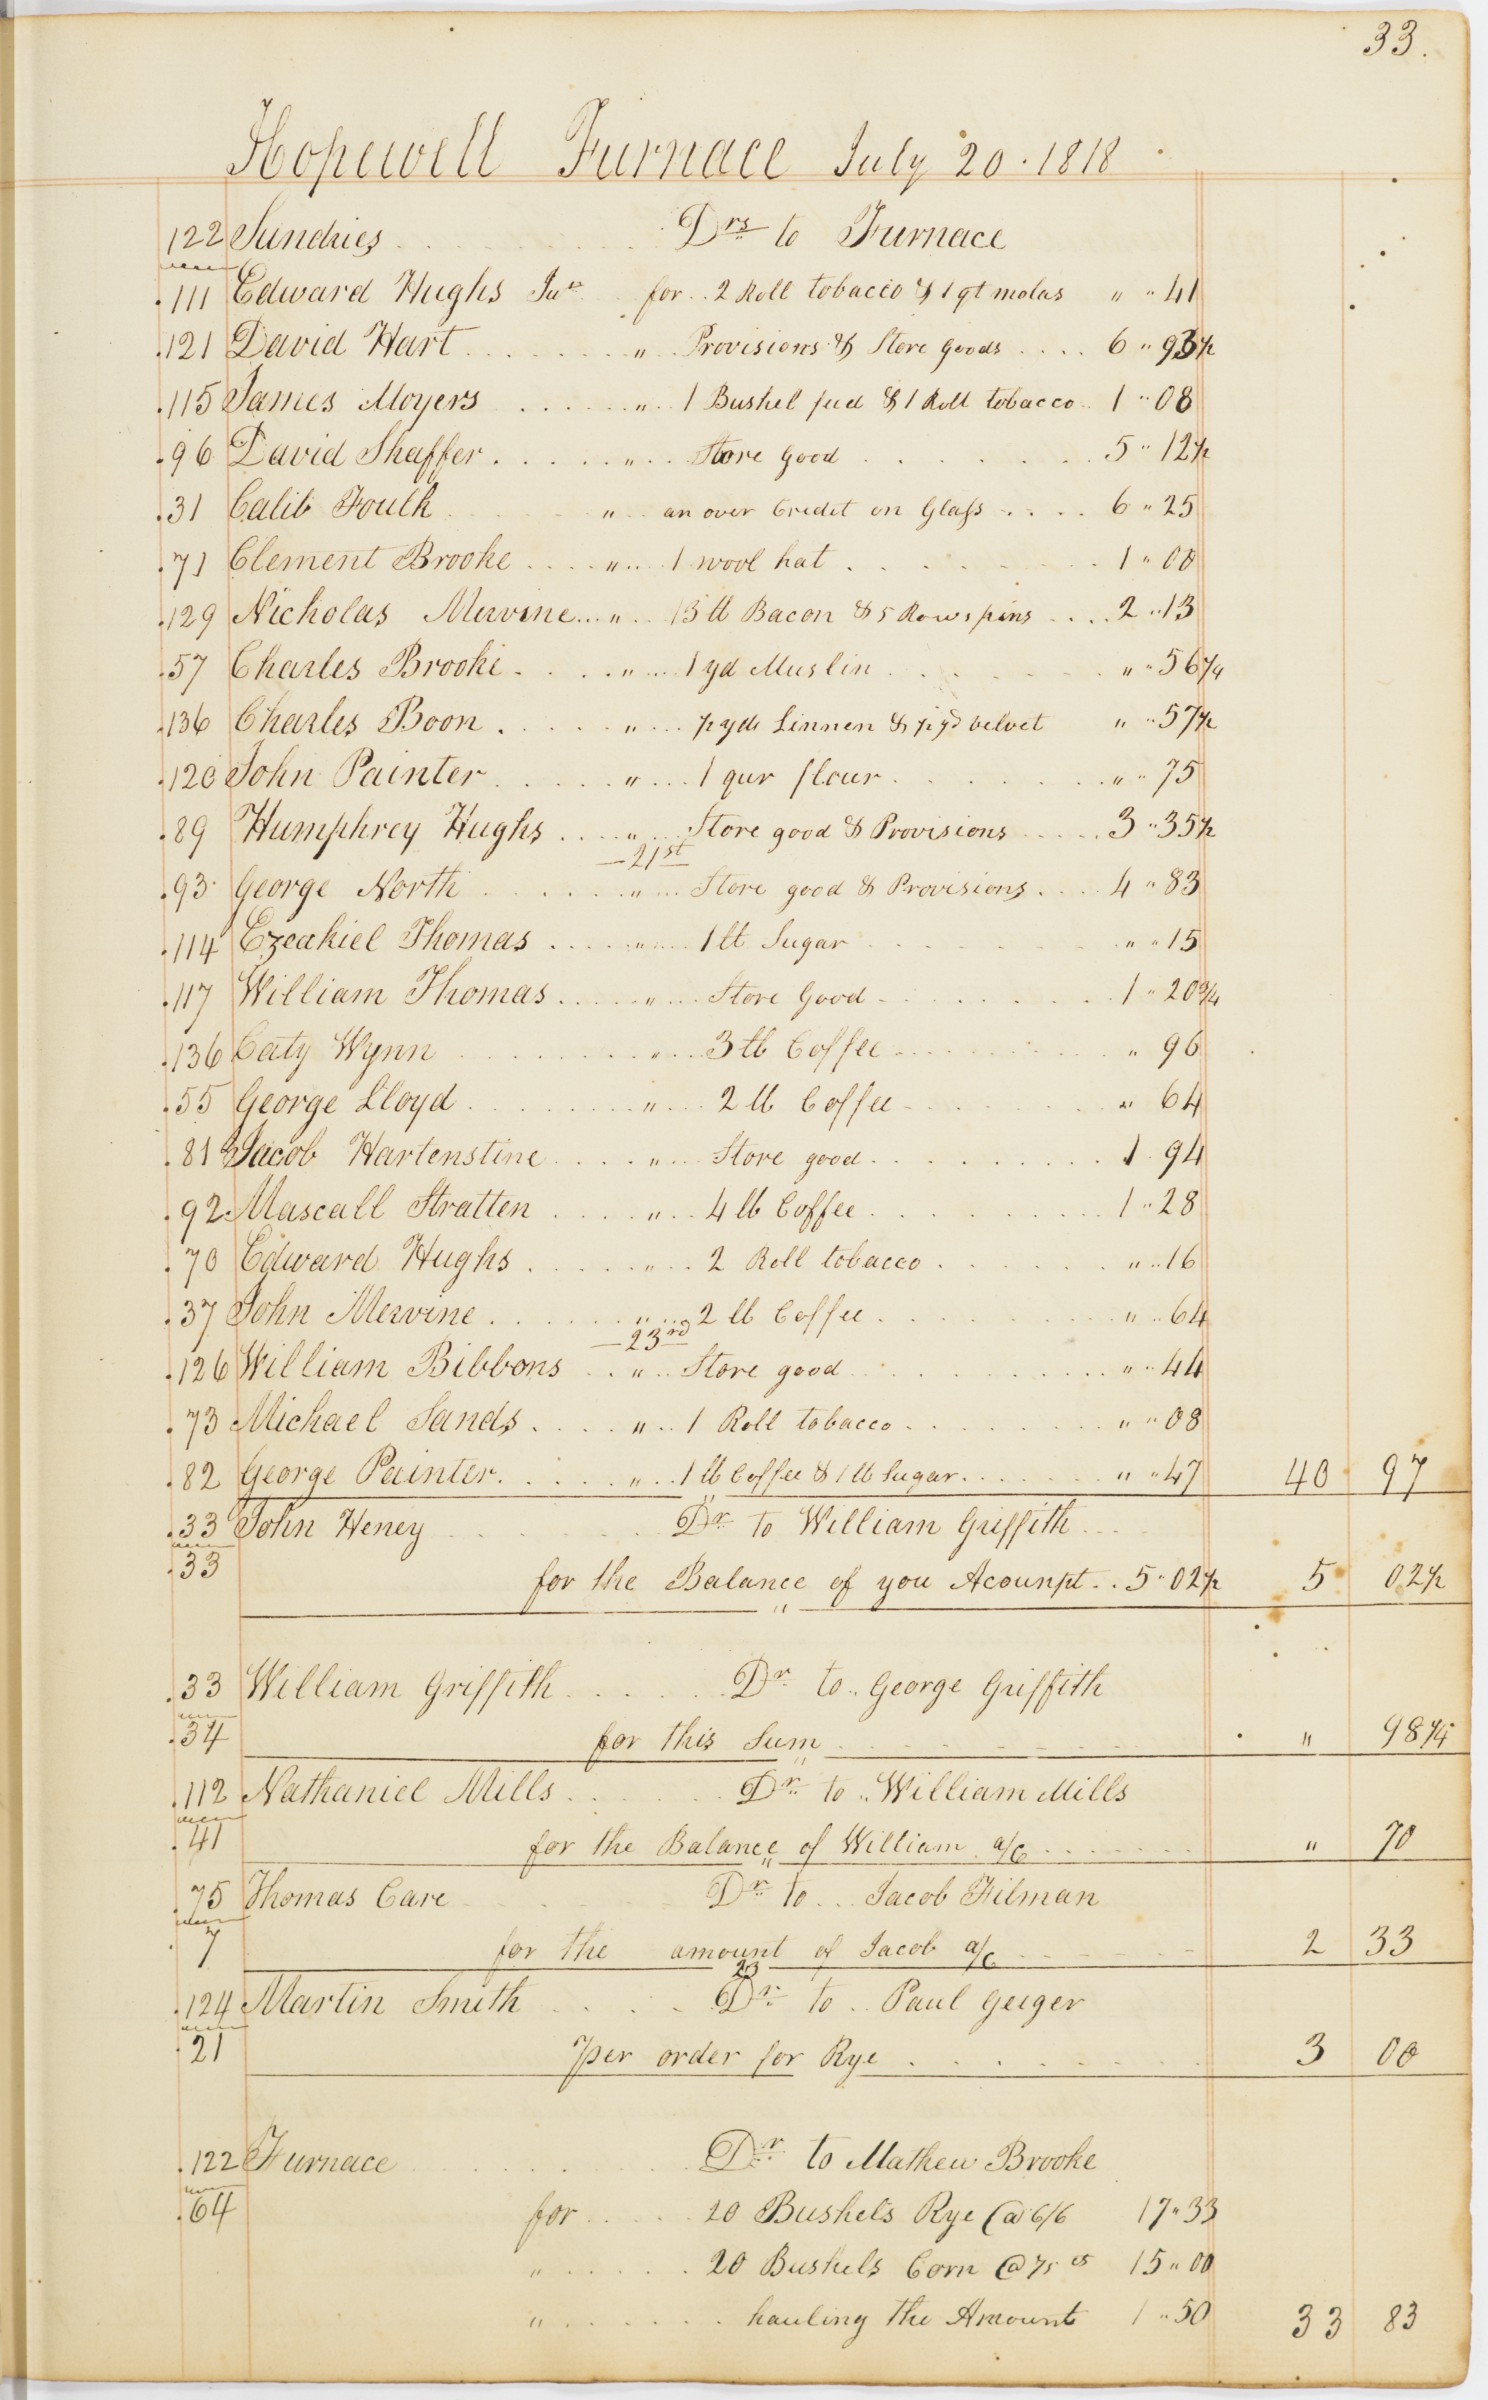 33.
Hopewell Furnace July 20. 1818
122 Sundries Drs to Furnace
111 Edward Hughs Junr for 2 Roll tobacco & 1 qt molas " " 41
121 David Hart " Provisions & Store goods 6 " 93½
115 James Moyers " 1 Bushel feed & 1 Roll tobacco 1 " 08
96 David Shaffer " Store good 5 " 12½
31 Calib Foulk " an over Credit on Glass 6 " 25
71 Clement Brooke " 1 wool hat 1 " 00
129 Nicholas Mervine " 13 lb Bacon & 5 Rows pins 2 " 13
57 Charles Brooke " 1 yd Muslin " " 56¼
136 Charles Boon " ½ yds Linnen & ½ yd velvet " " 57½
120 John Painter " 1 qur flour " " 75
89 Humphrey Hughs " Store good & Provisions 3 " 35½
21st
93 George North " Store good & Provisions 4 " 83
114 Ezeakiel Thomas " 1 lb Sugar " " 15
117 William Thomas " Store Good 1 " 20¾
136 Caty Wynn " 3 lb Coffee " 96
55 George Lloyd " 2 lb Coffee " 64
81 Jacob Hartenstine " Store good 1 94
92 Mascall Stratten " 4 lb Coffee 1 " 28
70 Edward Hughs " 2 Roll tobacco " " 16
37 John Mervine " 2 lb Coffee " " 64
23rd
126 William Bibbons " Store good " " 44
73 Michael Sands " 1 Roll tobacco " " 08
82 George Painter " 1 lb Coffee & 1 lb Sugar " " 47 40 97
"
33 John Heney Dr to William Griffith
33 for the Balance of you Acounpt 5 " 02½ 5 02½
"
33 William Griffith Dr to George Griffith
34 for this Sum " 98¼
"
112 Nathaniel Mills Dr to William Mills
41 for the Balance of William a/c " 70
"
75 Thomas Care Dr to Jacob Filman
7 for the amount of Jacob a/c 2 33
23
124 Martin Smith Dr to Paul Geiger
21 per order for Rye 3 00
122 Furnace Dr to Mathew Brooke
64 for 20 Bushels Rye @ 6/6 17 " 33
" 20 Bushels Corn @ 75 cs 15 " 00
" hauling the Amount 1 " 50 33 83